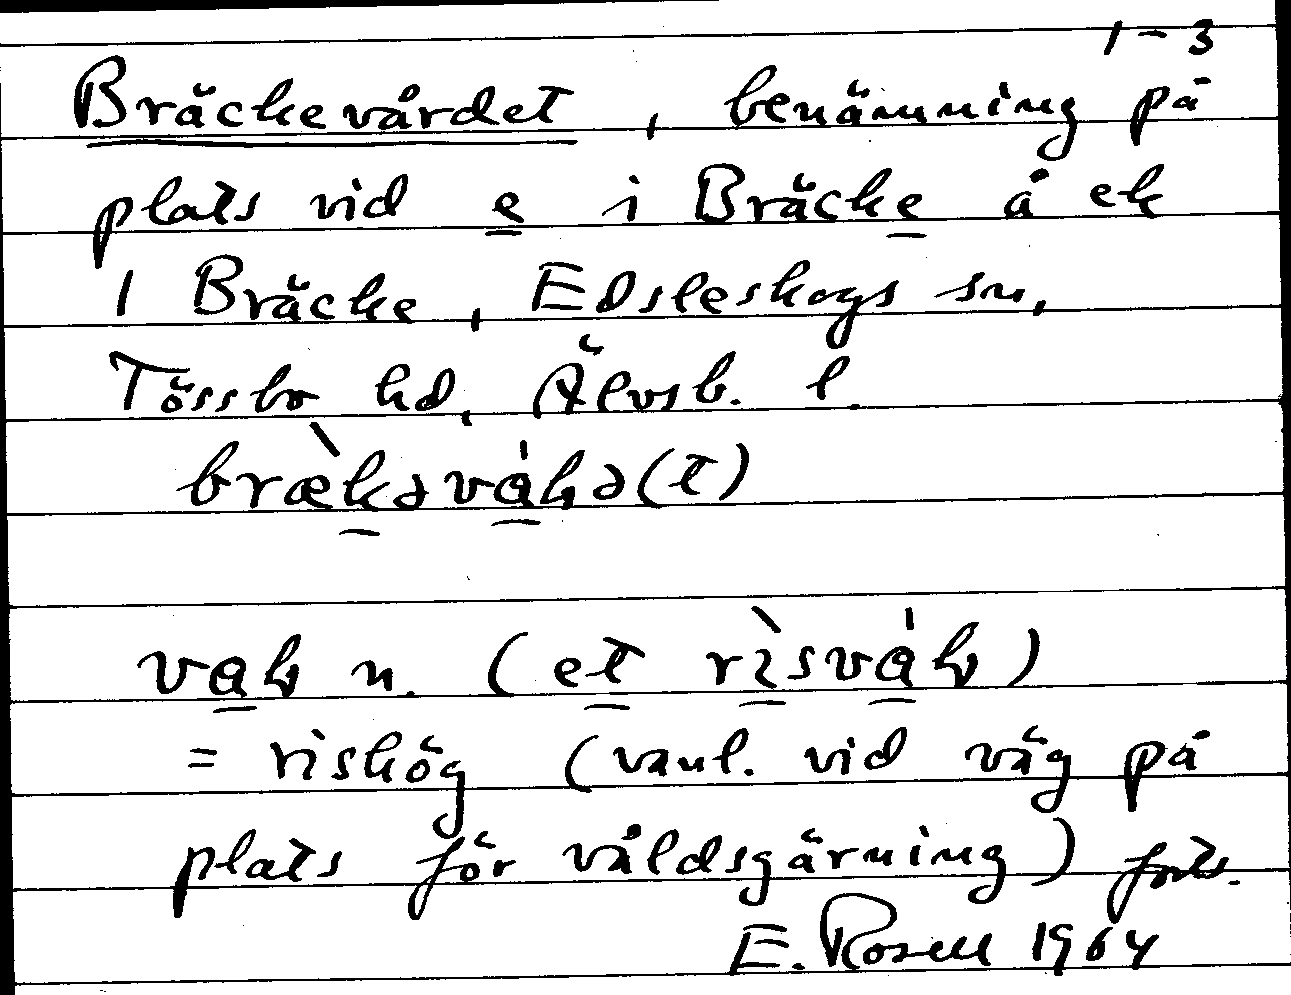 1-3
Bräckevårdet, benämning på
plats vid e i Bräcke å ek
1 Bräcke, Edsleskogs sn,
Tössbo hd, Älvsb. l.
bræ̀kəvɑ́ɭə(t)
vɑɭ n. (et rìsvɑ́ɭ)
= rishög (vanl. vid väg på
plats för våldsgärning) forts.
E. Rosell 1964